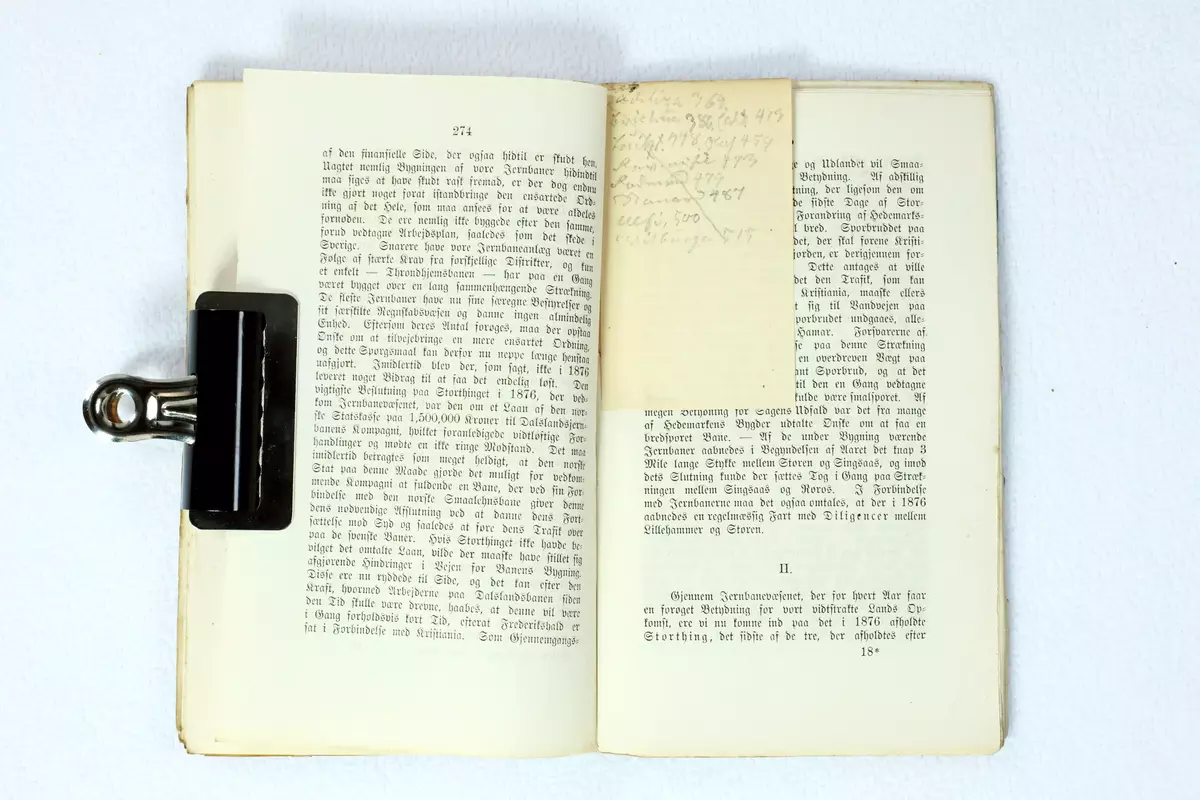 274
af den finansielle Side, der ogsaa hidtil er skudt hen.
Uagtet nemlig Bygningen af vore Jernbaner hidindtil
maa siges at have skudt rask fremad, er der dog endnu
ikke gjort noget forat istandbringe den ensartede Ord-
ning af det Hele, som maa ansees for at være aldeles
fornøden. De ere nemlig ikke byggede efter den samme,
forud vedtagne Arbejdsplan, saaledes som det skede i
Sverige. Snarere have vore Jernbaneanlæg været en
Følge af stærke Krav fra forskjellige Distrikter, og kun
et enkelt — Throndhjemsbanen — har paa en Gang
været bygget over en lang sammenhængende Strækning.
De fleste Jernbaner have nu sine særegne Bestyrelser og
sit særskilte Regnskabsvæsen og danne ingen almindelig
Enhed. Eftersom deres Antal forøges, maa der opstaa
Ønske om at tilvejebringe en mere ensartet Ordning,
og dette Spørgsmaal kan derfor nu neppe længe henstaa
uafgjort. Imidlertid blev der, som sagt, ikke i 1876
leveret noget Bidrag til at faa det endelig løst. Den
vigtigste Beslutning paa Storthinget i 1876, der ved-
kom Jernbanevæsenet, var den om et Laan af den nor-
ske Statskasse paa 1,500,000 Kroner til Dalslandsjern-
banens Kompagni, hvilket foranledigede vidtløftige For-
handlinger og mødte en ikke ringe Modstand. Det maa
imidlertid betragtes som meget heldigt, at den norske
Stat paa denne Maade gjorde det muligt for vedkom-
mende Kompagni at fuldende en Bane, der ved sin For-
bindelse med den norske Smaalehnsbane giver denne
dens nødvendige Afslutning ved at danne dens Fort-
sættelse mod Syd og saaledes at føre dens Trafik over
paa de svenske Baner. Hvis Storthinget ikke havde be-
vilget det omtalte Laan, vilde der maaske have stillet sig
afgjørende Hindringer i Vejen for Banens Bygning.
Disse ere nu ryddede til Side, og det kan efter den
Kraft, hvormed Arbejderne paa Dalslandsbanen siden
den Tid skulle være drevne, haabes, at denne vil være
i Gang forholdsvis kort Tid, efterat Frederikshald er
sat i Forbindelse med Kristiania. Som Gjennemgangs-
769
419
459
473
479
487
500
515
og Udlandet vil Smaa-
Betydning. Af adskillig
tning, der ligesom den om
de sidste Dage af Stor-
Forandring af Hedemarks-
l bred. Sporbruddet paa
det, der skal forene Kristi-
jorden, er derigjennem for-
Dette antages at ville
det den Trafik, som kan
Kristiania, maaske ellers
t sig til Vandvejen paa
porbrudet undgaaes, alle-
Hamar. Forsvarerne af
se paa denne Strækning
en overdreven Vægt paa
ant Sporbrud, og at det
til den en Gang vedtagne
fulde være smalsporet. Af
megen Betydning for Sagens Udfald var det fra mange
af Hedemarkens Bygder udtalte Ønske om at faa en
bredsporet Bane. — Af de under Bygning værende
Jernbaner aabnedes i Begyndelsen af Aaret det knap 3
Mile lange Stykke mellem Støren og Singsaas, og imod
dets Slutning kunde der sættes Tog i Gang paa Stræk-
ningen mellem Singsaas og Røros. I Forbindelse
med Jernbanerne maa det ogsaa omtales, at der i 1876
aabnedes en regelmæssig Fart med Diligencer mellem
Lillehammer og Støren.
II.
Gjennem Jernbanevæsenet, der for hvert Aar faar
en forøget Betydning for vort vidtstrakte Lands Op-
komst, ere vi nu komne ind paa det i 1876 afholdte
Storthing, det sidste af de tre, der afholdtes efter
18*